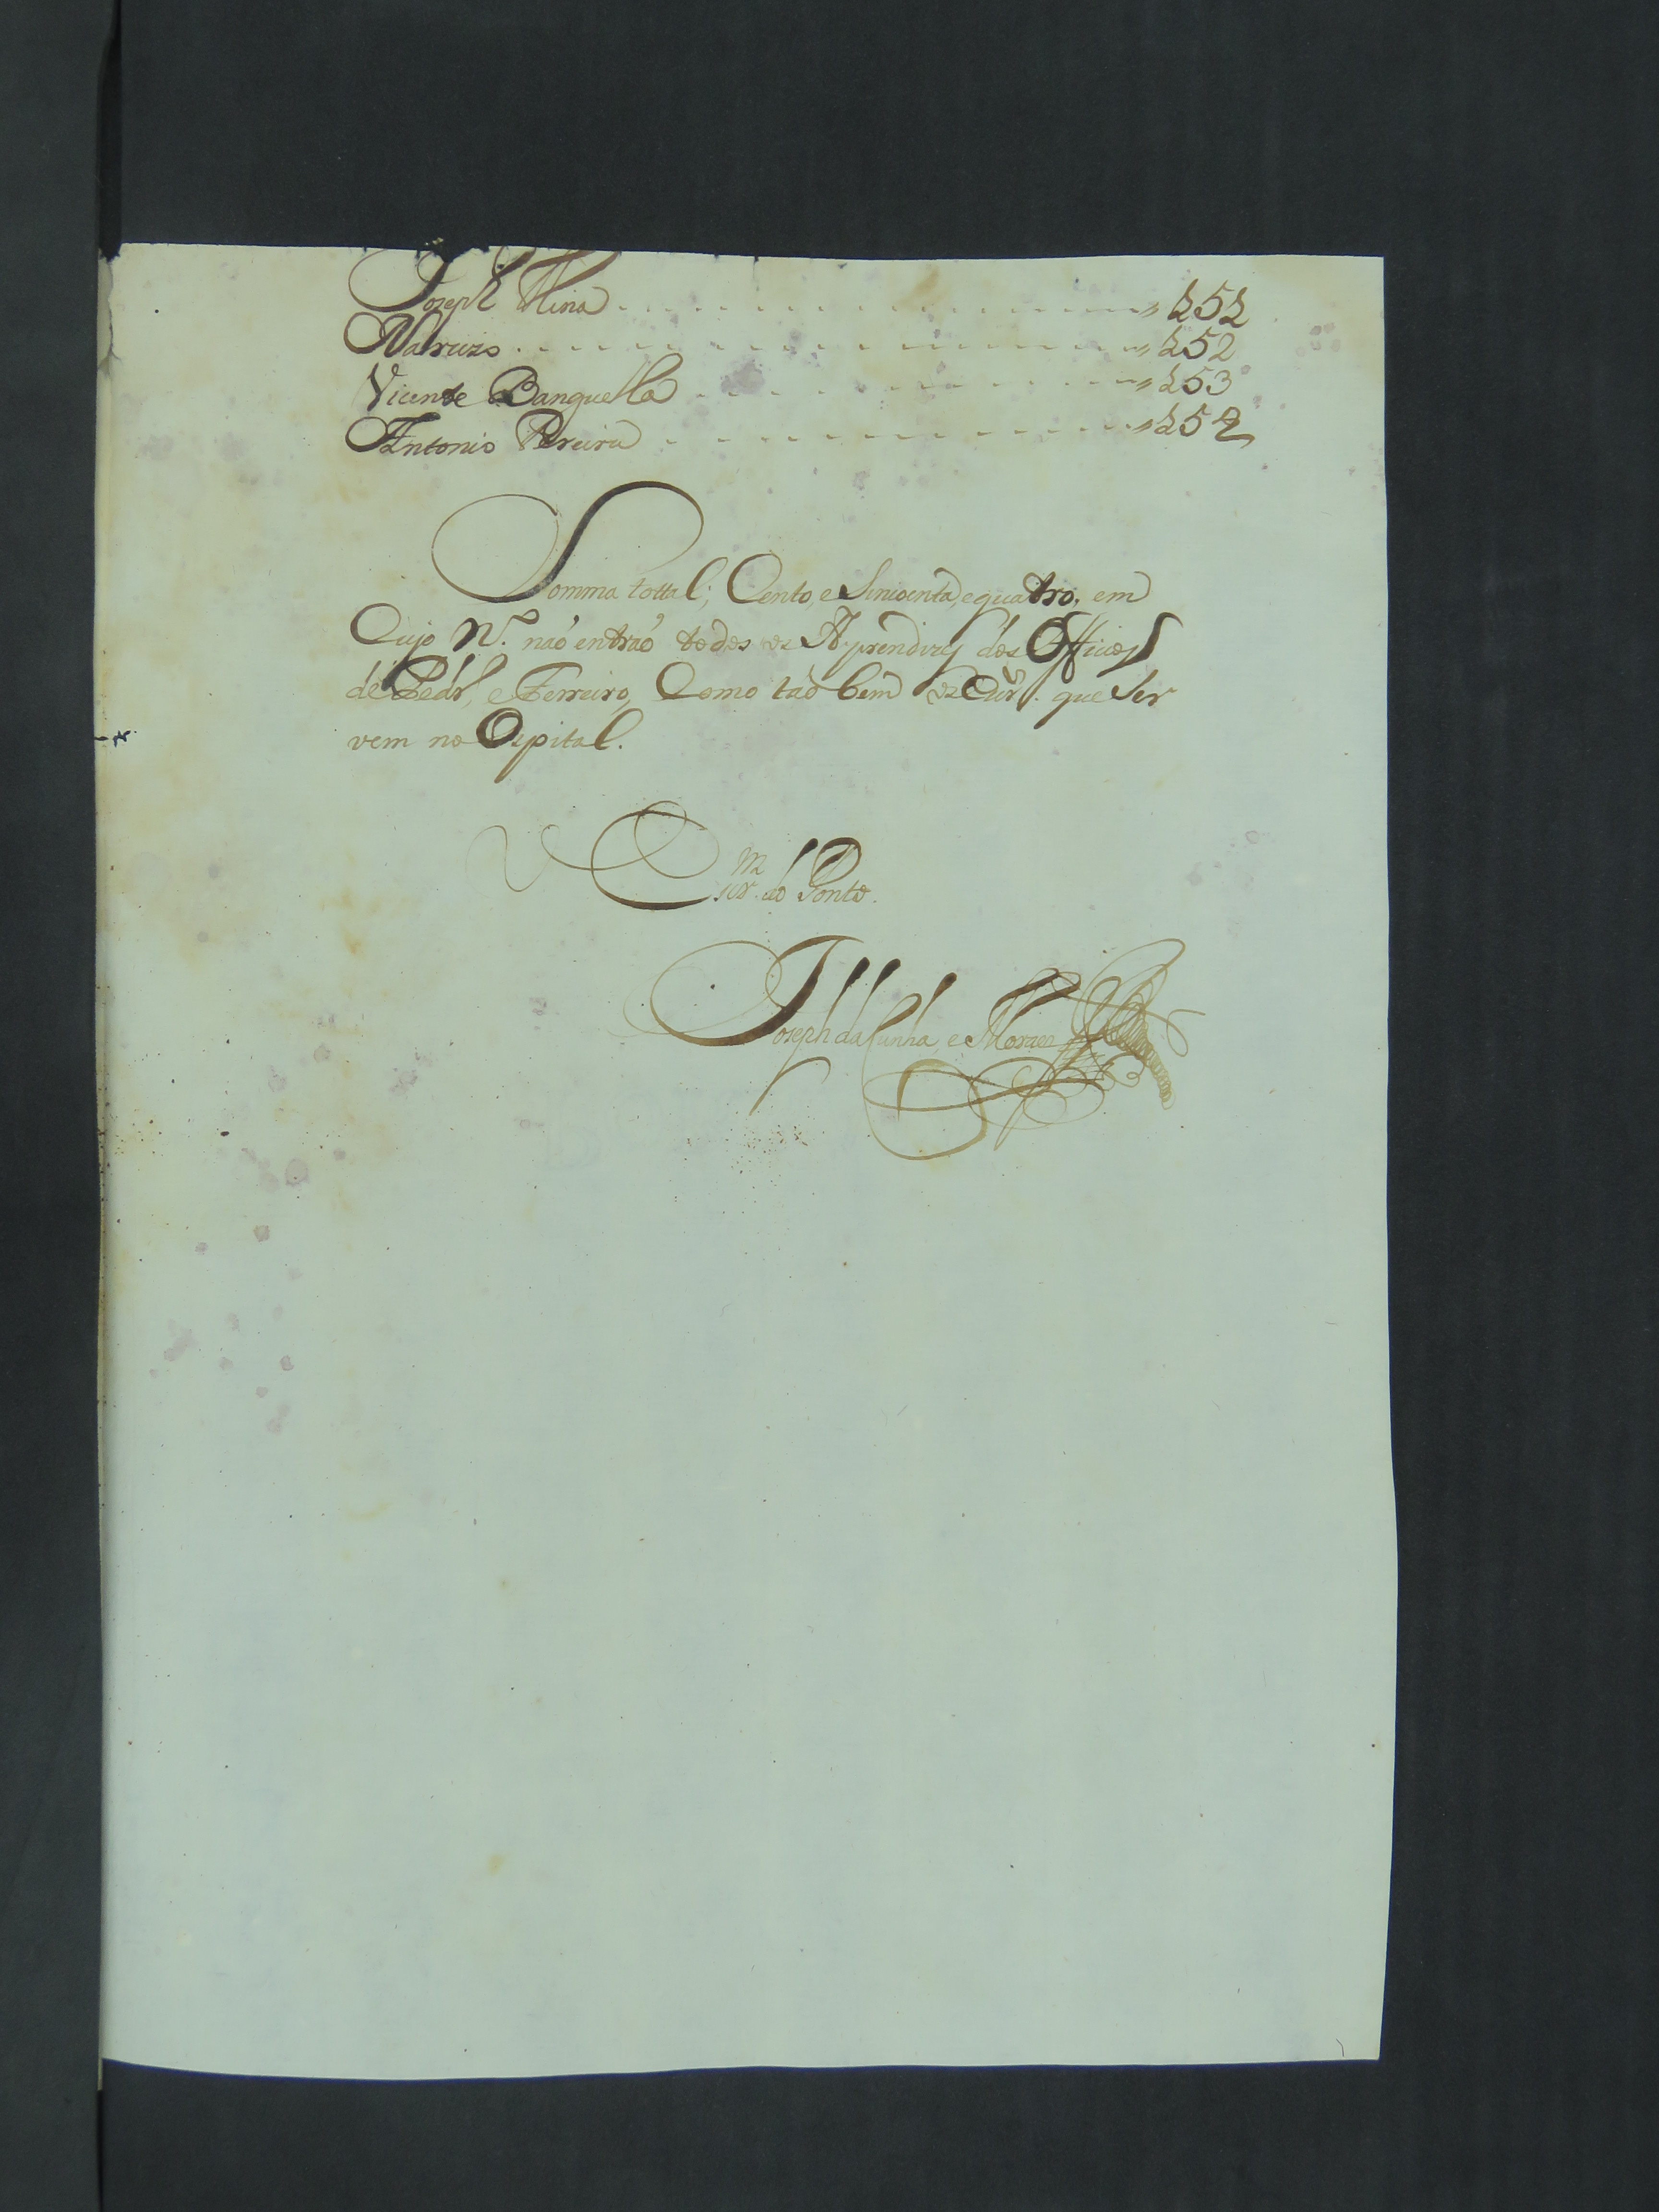 Joseph Mina - - - - - - - - - - - - - - - - - - " 151
Narcizo - - - - - - - - - - - - - - - - - - - - " 152
Vicente Banguella - - - - - - - - - - - - " 153
Antonio Pereira - - - - - - - - - - - - - " 154
Somma total; Cento, e Sincoenta, e quatro, em
Cujo N.º naõ entraõ todos os Aprendizes dos Officios
de Pedr.º, e Ferreiro, Como taõ bem os que Ser
vem no Ospital.
do Ponto.
Joseph da Cunha, e Moraes